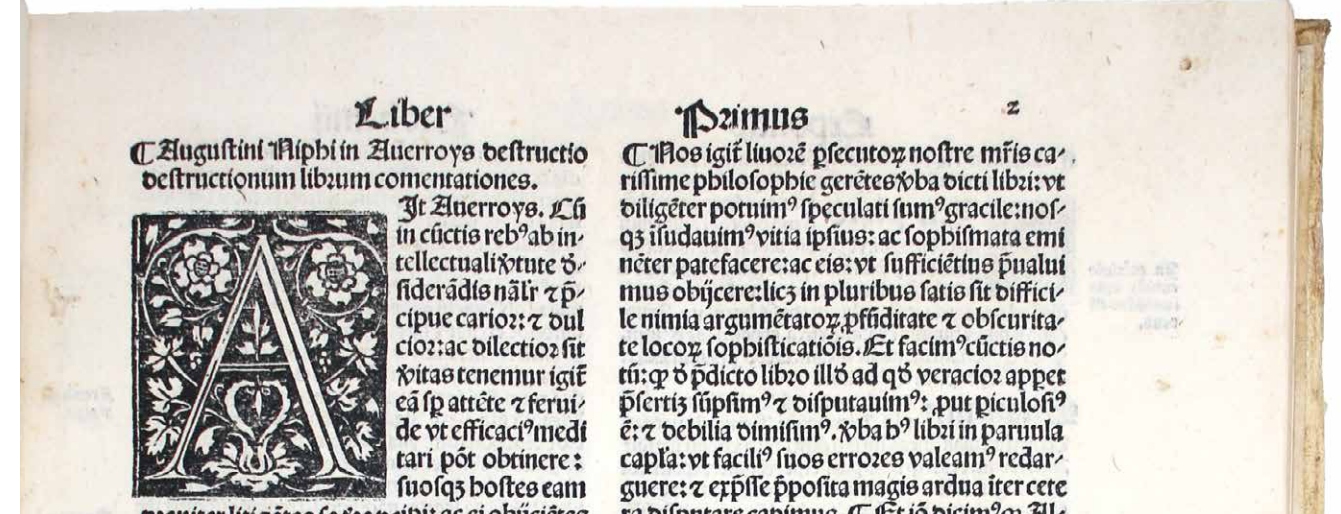 Liber Primus 2
⁋ Augustini Niphi in Auerroys destructio
destructionum librum comentationes.
AIt Auerroys. Cũ
in cũctis rebꝰ ab in-
tellectuali v̾tute d̾-
siderãdis nãlr̃ ⁊ p̃-
cipue carior: ⁊ dul
cior: ac dilectior sit
v̾itas tenemur igit̃
eã sp̱ attẽte ⁊ ferui-
de vt efficaciꝰ medi
tari põt obtinere:
suosqꝫ hostes eam
⁋ Nos igit̃ liuorẽ ꝑsecutoꝝ nostre mr̃is ca-
rissime philosophie gerẽtes v̾ba dicti libri: vt
diligẽter potuimꝰ speculati sumꝰ gracile: nos-
qꝫ ĩsudauimꝰ vitia ipsius: ac sophismata emi
nẽter patefacere: ac eis: vt sufficiẽtius p̃ualui
mus obijcere: licꝫ in pluribus satis sit diffici-
le nimia argumẽtatoꝝ ꝓfũditate ⁊ obscurita-
te locoꝝ sophisticatiõis. Et facimꝰ cũctis no-
tũ: ꝙ d̾ p̃dicto libro illd̾ ad qd̾ veracior appet
p̃sertiꝫ sũpsimꝰ ⁊ disputauimꝰ: ꝓut ꝑiculosiꝰ
ẽ: ⁊ debilia dimisimꝰ. v̾ba hꝰ libri in paruula
capl̃a: vt faciliꝰ suos errores valeamꝰ redar-
guere: ⁊ exp̃sse p̃posita magis ardua ĩter cete